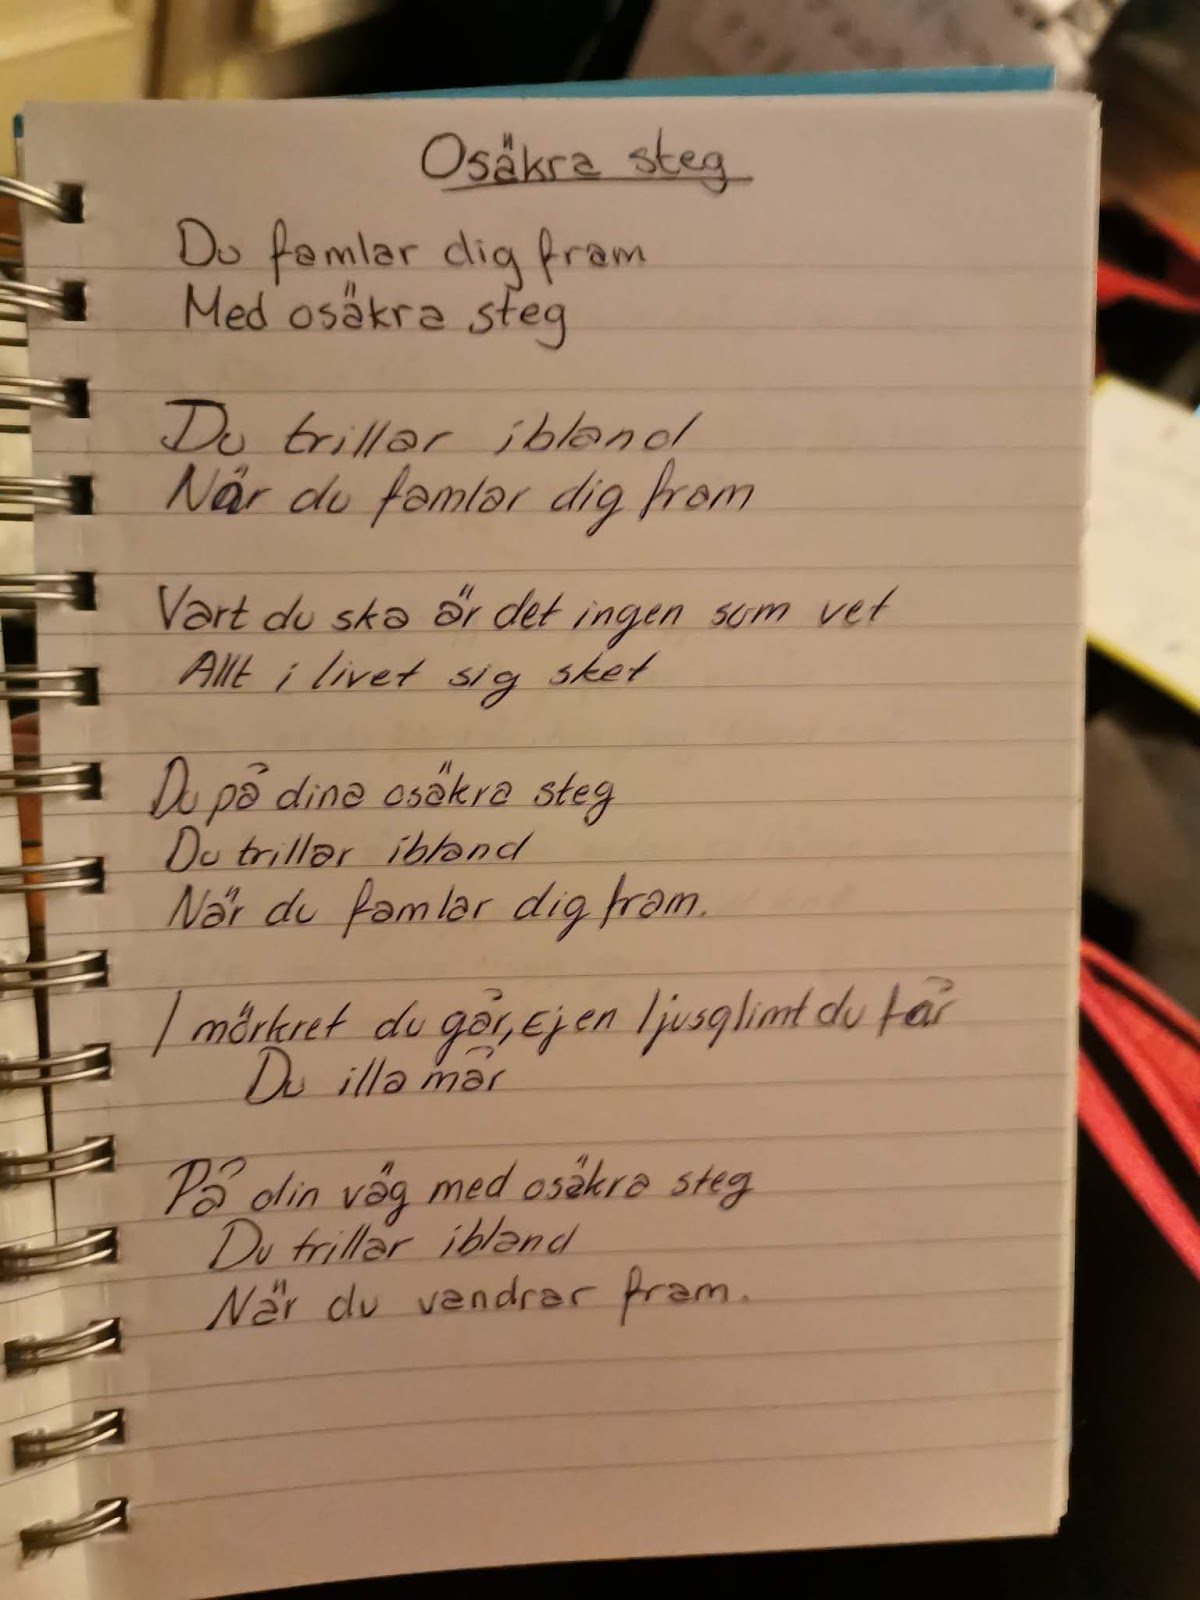 Osäkra steg
Du famlar dig fram
Med osäkra steg
Du trillar ibland
När du famlar dig fram
Vart du ska är det ingen som vet
Allt i livet sig sket
Du på dina osäkra steg
Du trillar ibland
När du famlar dig fram.
I mörkret du går, Ej en ljusglimt du får
Du illa mår
På din väg med osäkra steg
Du trillar ibland
När du vandrar fram.